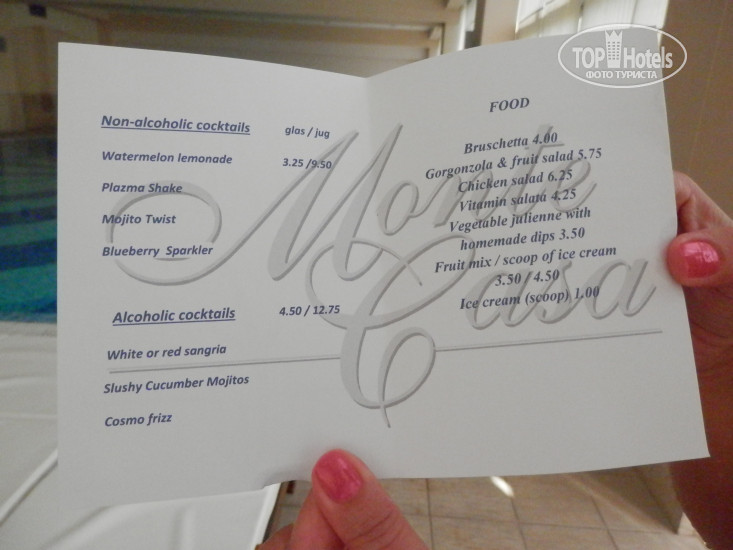 TOP Hotels
ФОТО ТУРИСТА
Non-alcoholic cocktails glas / jug
Watermelon lemonade 3.25 /9.50
Plazma Shake
Mojito Twist
Blueberry Sparkler
Alcoholic cocktails 4.50 / 12.75
White or red sangria
Slushy Cucumber Mojitos
Cosmo frizz
FOOD
Bruschetta 4.00
Gorgonzola & fruit salad 5.75
Chicken salad 6.25
Vitamin salata 4.25
Vegetable julienne with
homemade dips 3.50
Fruit mix / scoop of ice cream
3.50 / 4.50
Ice cream (scoop) 1.00
Monte
Casa